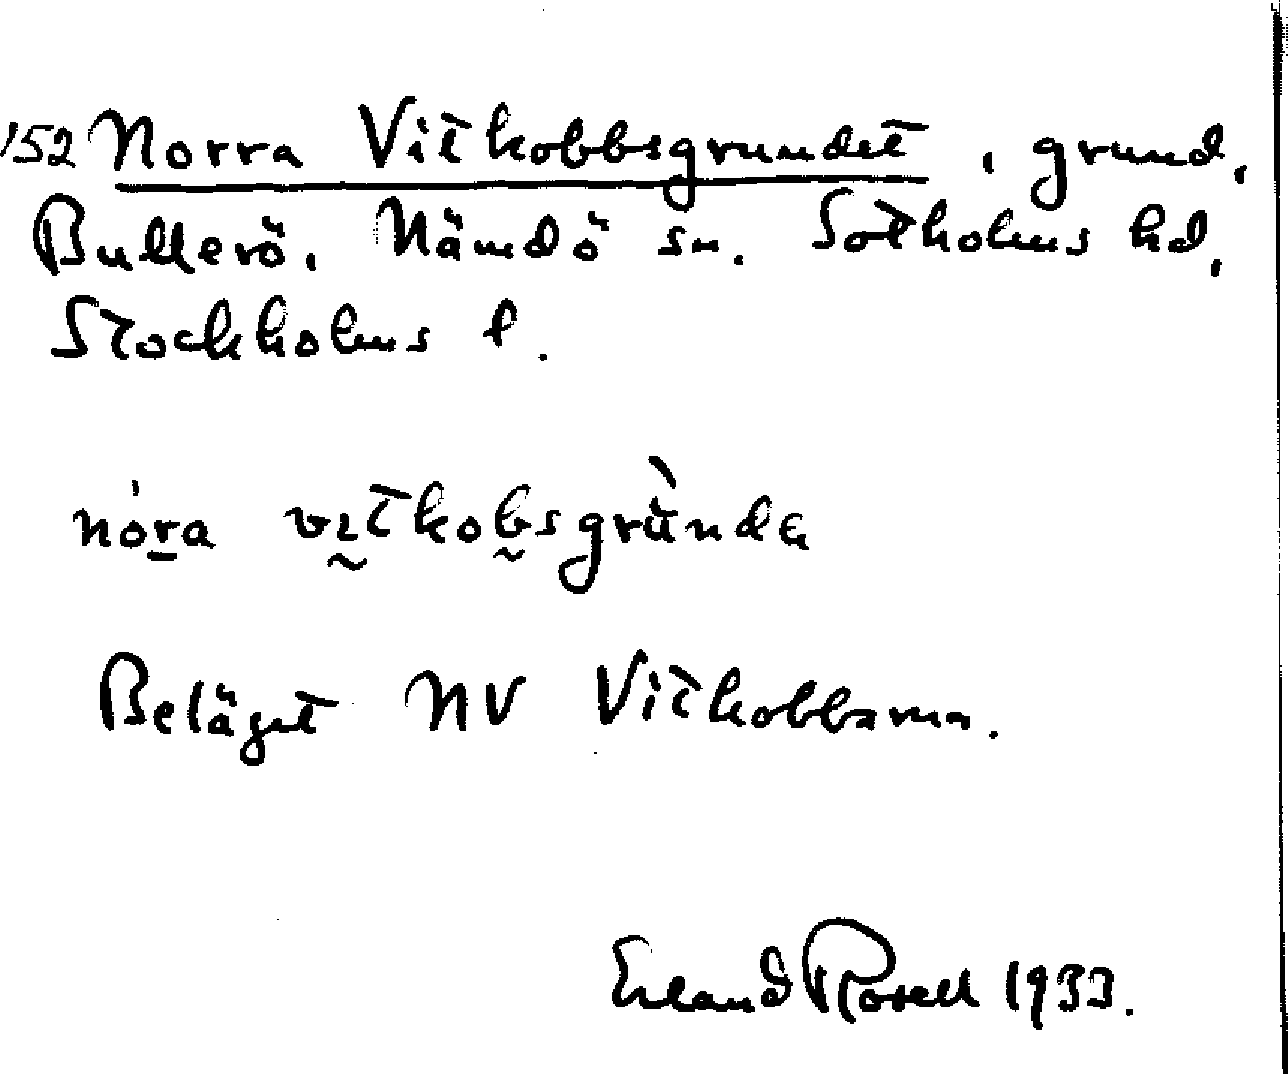 152 Norra Vitkobbsgrundet, grund,
Bullerö, Nämdö sn. Sotholms hd,
Stockholms l.
nòra vıtkobsgrùnda
Beläget NV Vitkobbarna.
Erland Rosell 1933.